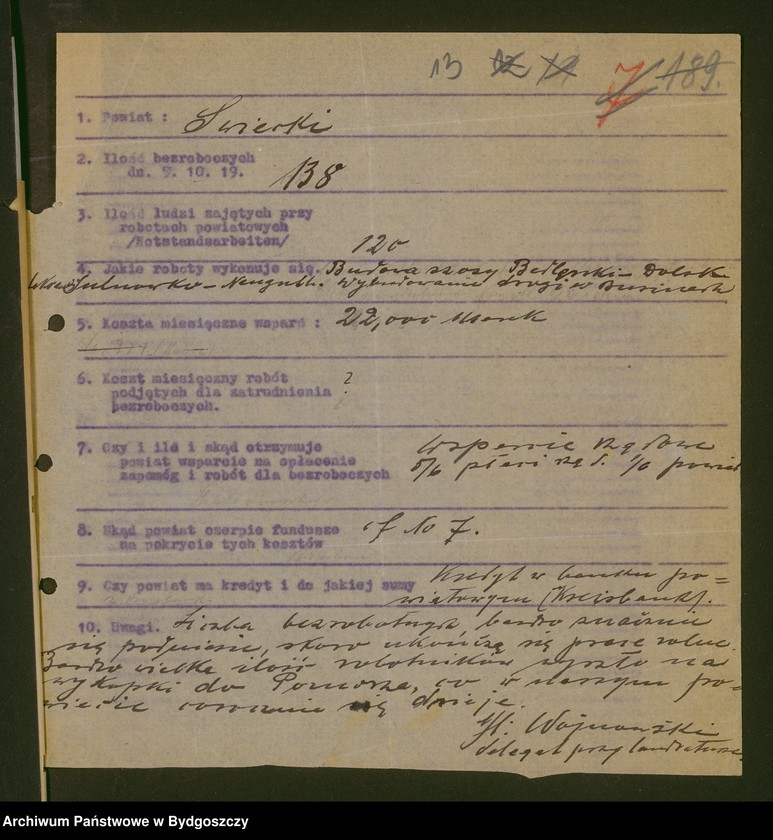 13 12 14 7 189.
1. Powiat : Świecki
2. Ilość bezroboczych
dn. 9. 10. 19. 138
3. Ilość ludzi zajętych przy
robotach powiatowych
/Notstandsarbeiten/ 120
4. Jakie roboty wykonuje się. Budowa szosy Bedlęnki - Dolsk
Sulnowko - Neuguth. Wybudowanie drogi w
5. Koszta miesięczne wsparć : 22,000 Marek
6. Koszt miesięczny robót ?
podjętych dla zatrudnienia
bezroboczych.
7. Czy i ile i skąd otrzymuje wsparcie rządowe
powiat wsparcie na opłacenie 5/6 płaci rząd. 1/6 powiat
zapomóg i robót dla bezroboczych
8. Skąd powiat czerpie fundusze cf No 7.
na pokrycie tych kosztów
9. Czy powiat ma kredyt i do jakiej sumy Kredyt w banku po=
wiatowym (Kreisbank).
10. Uwagi. Liczba bezrobotnych bardzo znacznie
się podniesie, skoro ukończą się prace rolne.
Bardzo wielka ilość robotników wyszło na
wykopki do Pomorza, co w naszym po=
wiecie corocznie się dzieje.
Wojnowski
delegat przy landraturze.
Archiwum Państwowe w Bydgoszczy